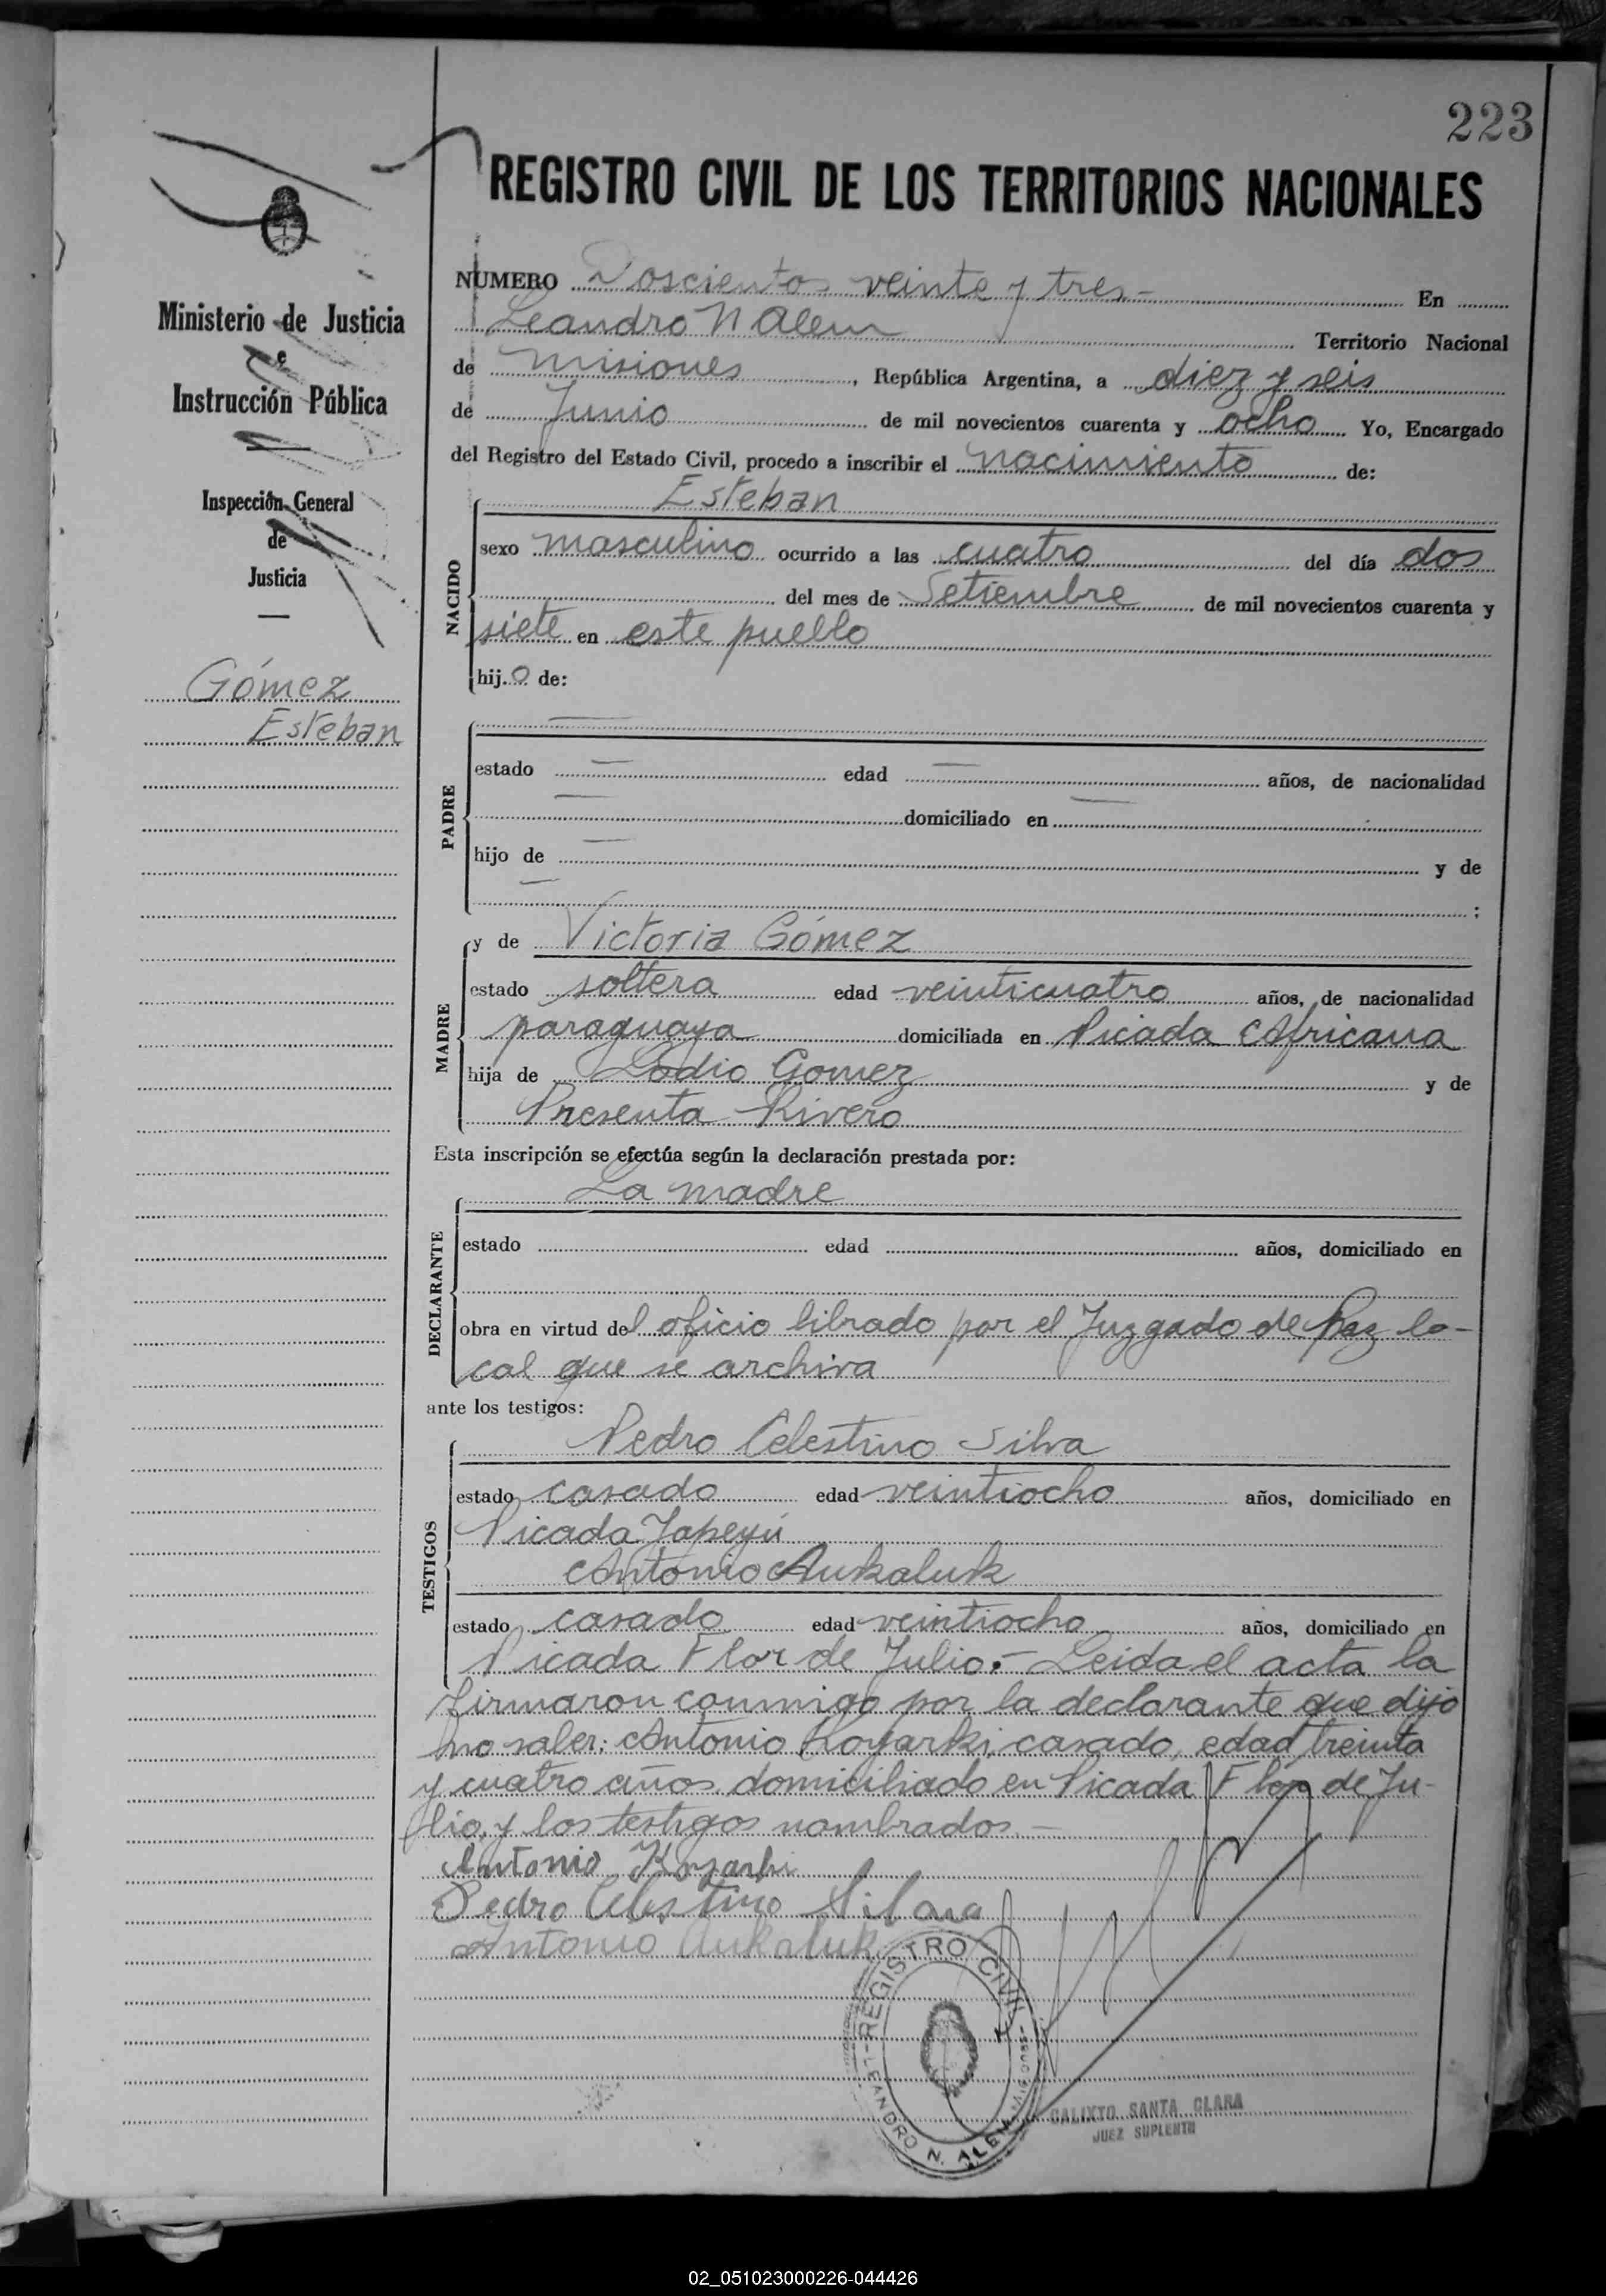 223
REGISTRO CIVIL DE LOS TERRITORIOS NACIONALES
Ministerio de Justicia
e
Instrucción Pública
Inspección General
de
Justicia
Gómez
Esteban
NUMERO Doscientos veinte y tres- En
Leandro N Alem Territorio Nacional
de Misiones, República Argentina, a diez y seis
de Junio de mil novecientos cuarenta y ocho Yo, Encargado
del Registro del Estado Civil, procedo a inscribir el nacimiento de:
Esteban
NACIDO
sexo masculino ocurrido a las cuatro del día dos
del mes de Setiembre de mil novecientos cuarenta y
siete en este pueblo
hijo de:
PADRE
estado — edad — años, de nacionalidad
— domiciliado en —
hijo de — y de
— ;
MADRE
y de Victoria Gómez
estado soltera edad veinticuatro años, de nacionalidad
paraguaya domiciliada en Picada Africana
hija de Gomez y de
Presenta Rivero
Esta inscripción se efectúa según la declaración prestada por:
La madre
DECLARANTE
estado edad años, domiciliado en
obra en virtud del oficio librado por el Juzgado de Paz lo-
cal que se archiva
ante los testigos:
TESTIGOS
Pedro Celestino Silva
estado casado edad veintiocho años, domiciliado en
Picada Yapeyú
Antonio Aukaluk
estado casado edad veintiocho años, domiciliado en
Picada Flor de Julio.- Leida el acta la
firmaron conmigo por la declarante que dijo
no saber: Antonio Koyarki, casado, edad treinta
y cuatro años domiciliado en Picada Flor de Ju-
lio, y los testigos nombrados.-
Antonio
Pedro Celestino Silva
Antonio Aukaluk
REGISTRO CIVIL
LEANDRO N. ALEM
CALIXTO SANTA CLARA
JUEZ SUPLENTE
02_051023000226-044426